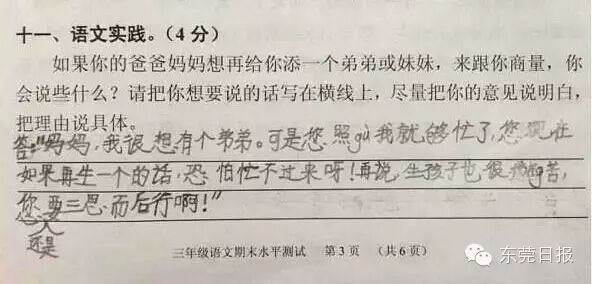 十一、语文实践。（4分）
如果你的爸爸妈妈想再给你添一个弟弟或妹妹，来跟你商量，你
会说些什么？请把你想要说的话写在横线上，尽量把你的意见说明白，
把理由说具体。
答："妈妈，我很想有个弟弟。可是您照gù我就够忙了，您现在
如果再生一个的话，恐怕忙不过来呀！再说，生孩子也很痛苦，
您要三思而后行啊！"
还是
三年级语文期末水平测试 第3页 （共6页）
东莞日报